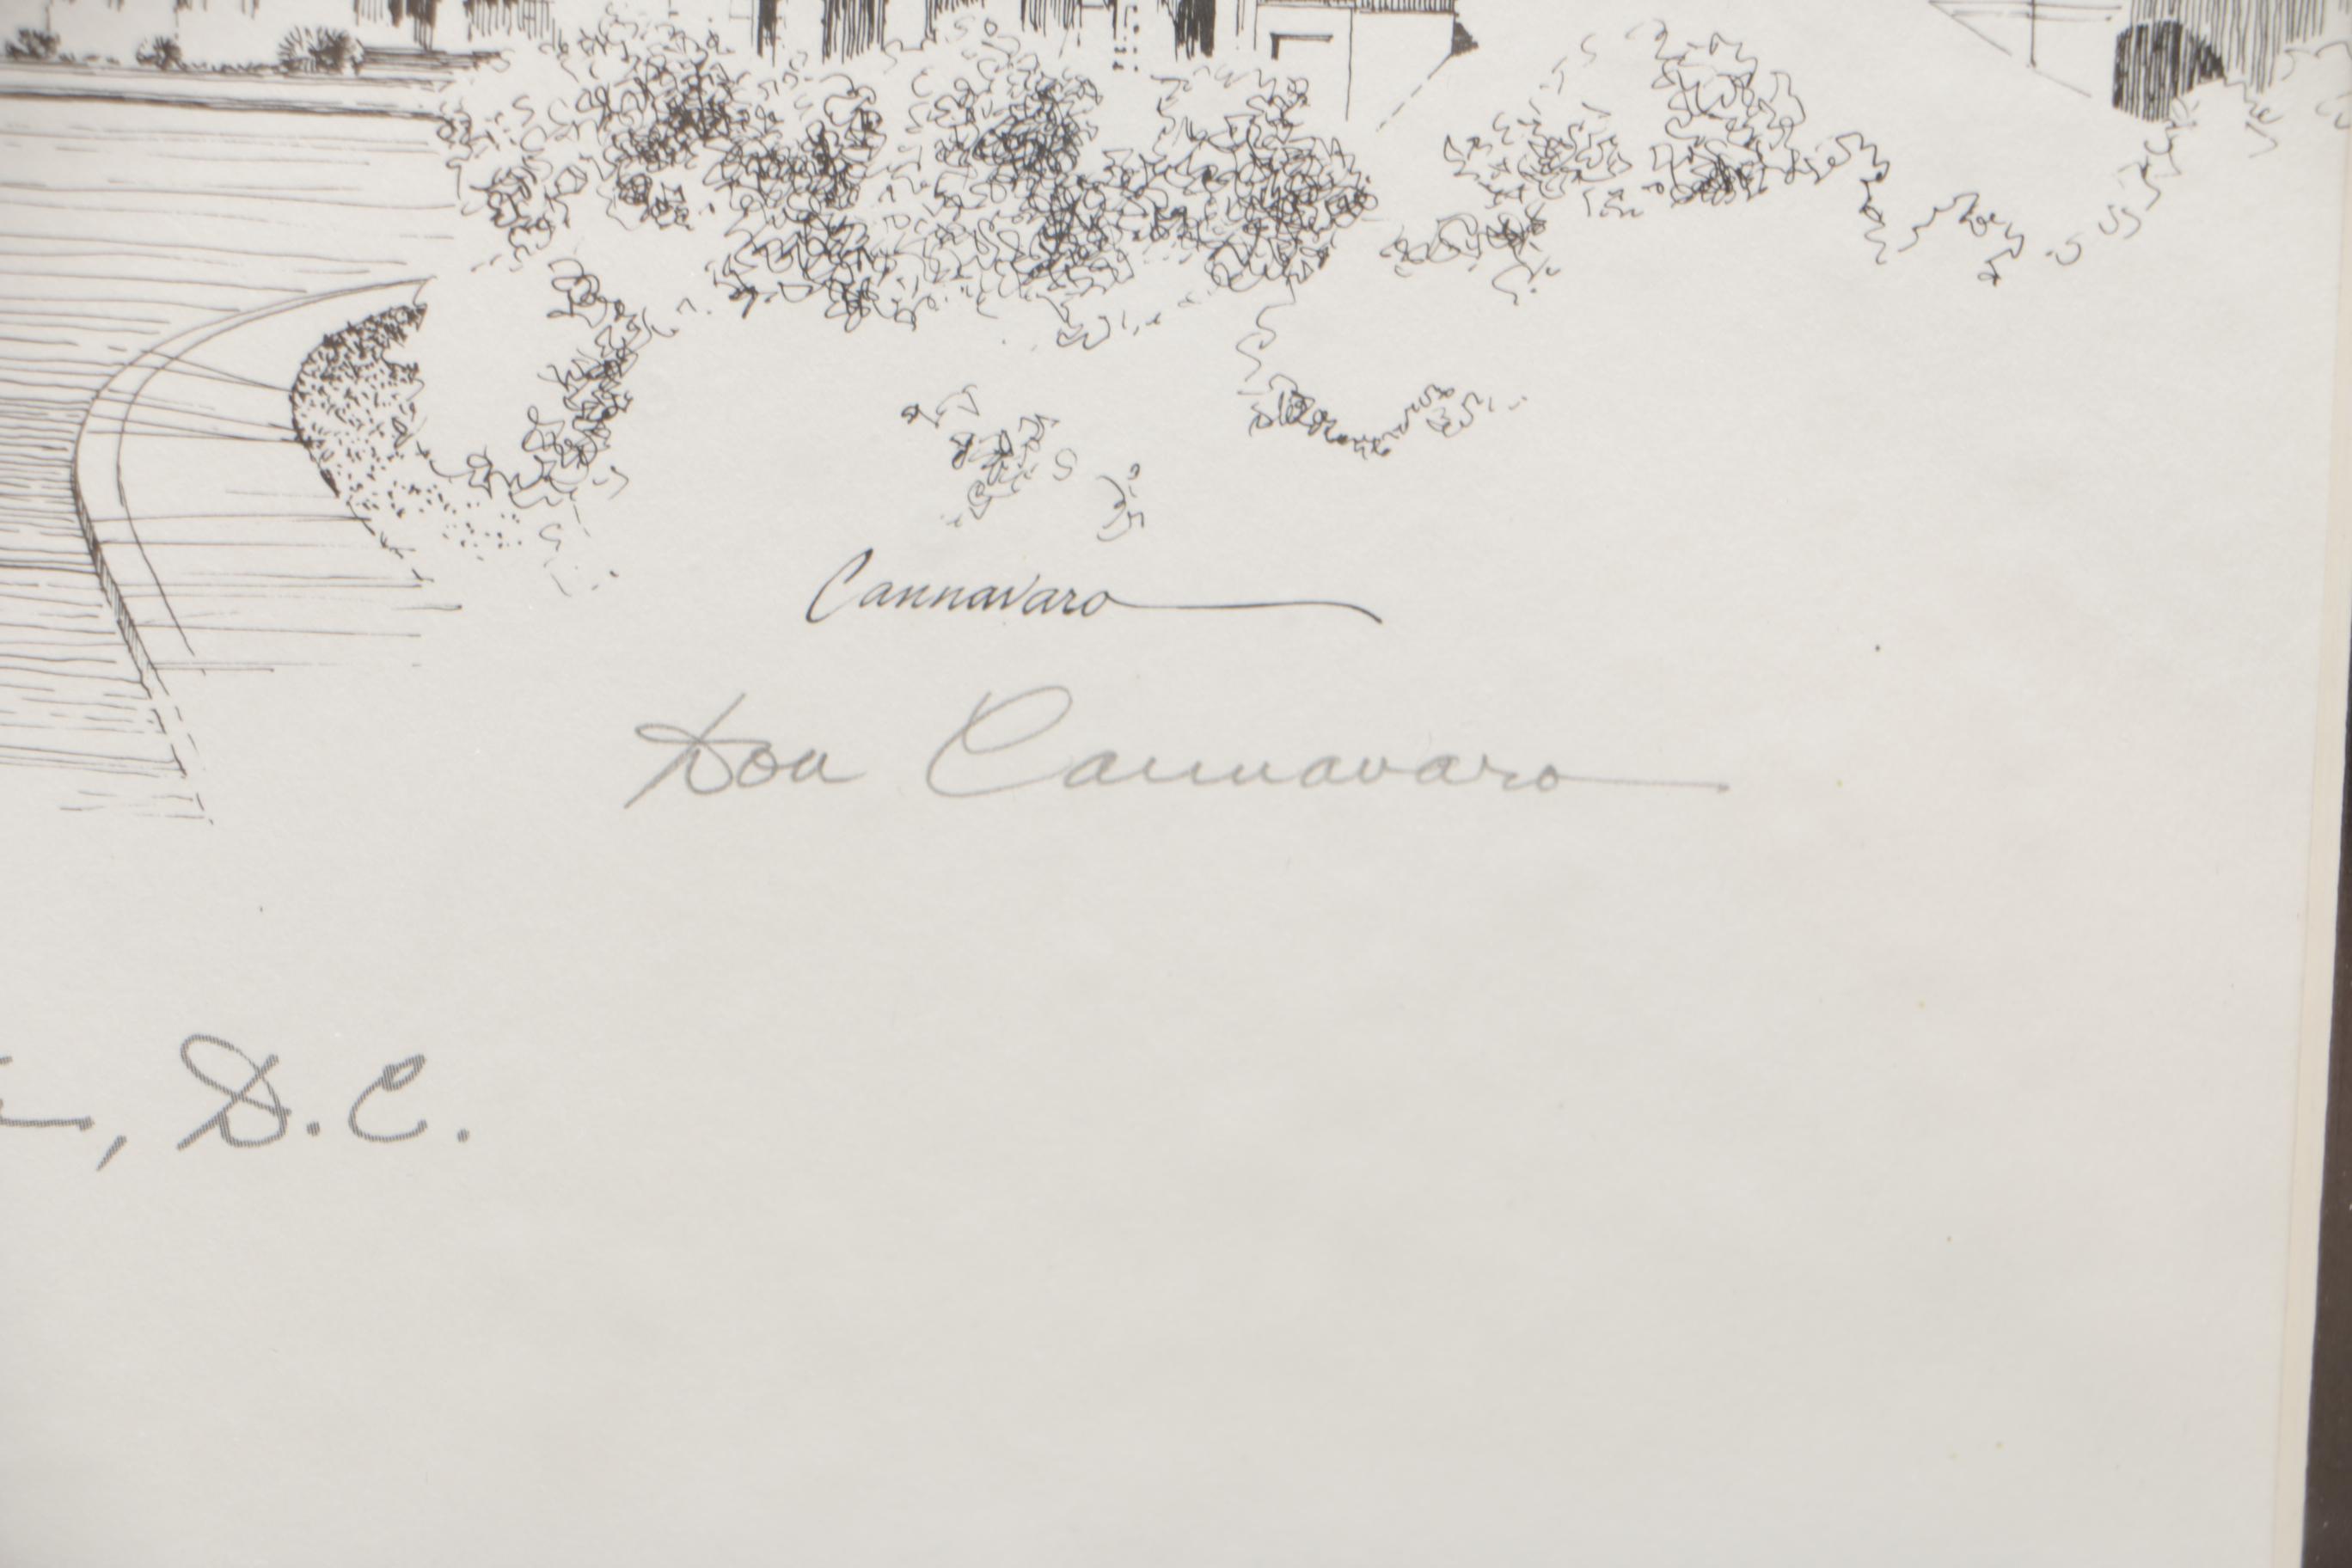 Cannavaro
Don Cannavaro
, D.C.